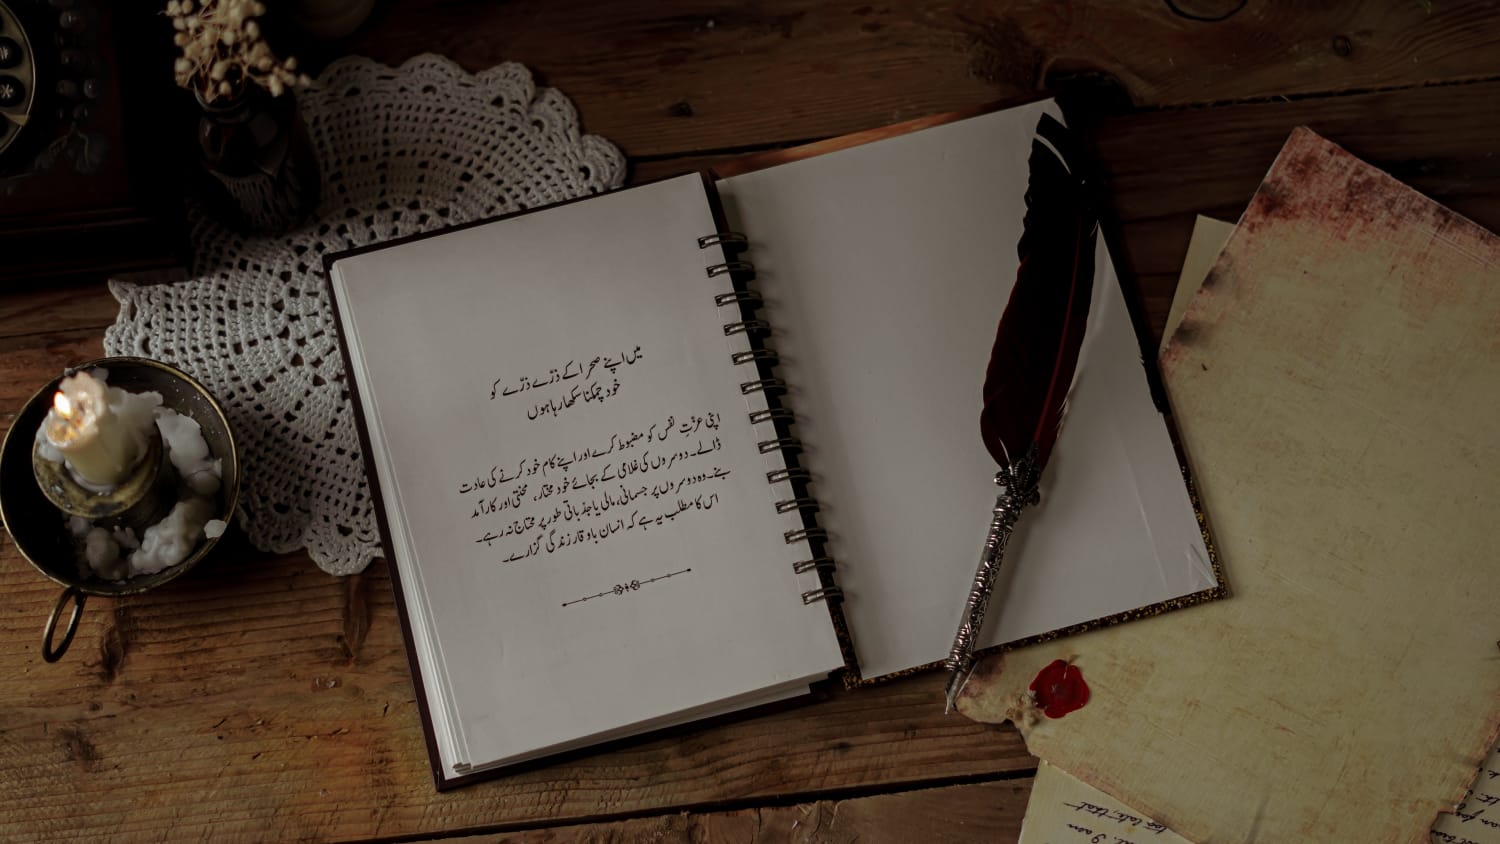 میں اپنے صحرا کے ذرّے ذرّے کو
خود چمکنا سکھا رہا ہوں
اپنی عزّتِ نفس کو مضبوط کرے اور اپنے کام خود کرنے کی عادت
ڈالے۔ دوسروں کی غلامی کے بجائے خود مختار، محنتی اور کارآمد
بنے۔ وہ دوسروں پر جسمانی، مالی یا جذباتی طور پر محتاج نہ رہے۔
اس کا مطلب یہ ہے کہ انسان باوقار زندگی گزارے۔